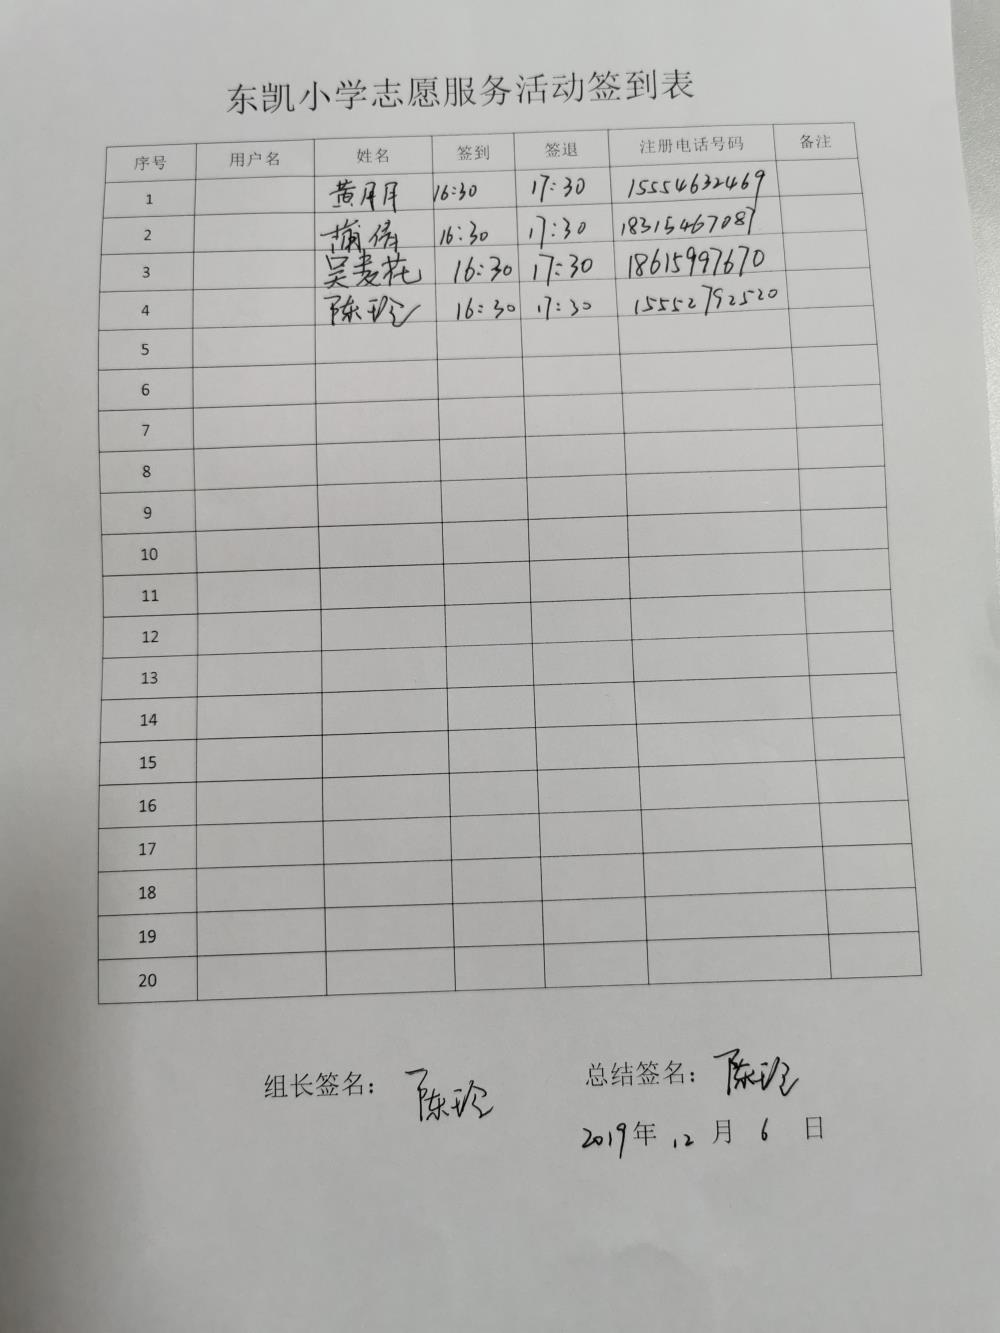 东凯小学志愿服务活动签到表
序号 用户名 姓名 签到 签退 注册电话号码 备注
1 黄月月 16:30 17:30 15554632469
2 蒲倩 16:30 17:30 18315467087
3 吴麦花 16:30 17:30 18615997670
4 陈玲 16:30 17:30 15552792520
5
6
7
8
9
10
11
12
13
14
15
16
17
18
19
20
组长签名： 陈玲 总结签名： 陈玲
2019年 12 月 6 日